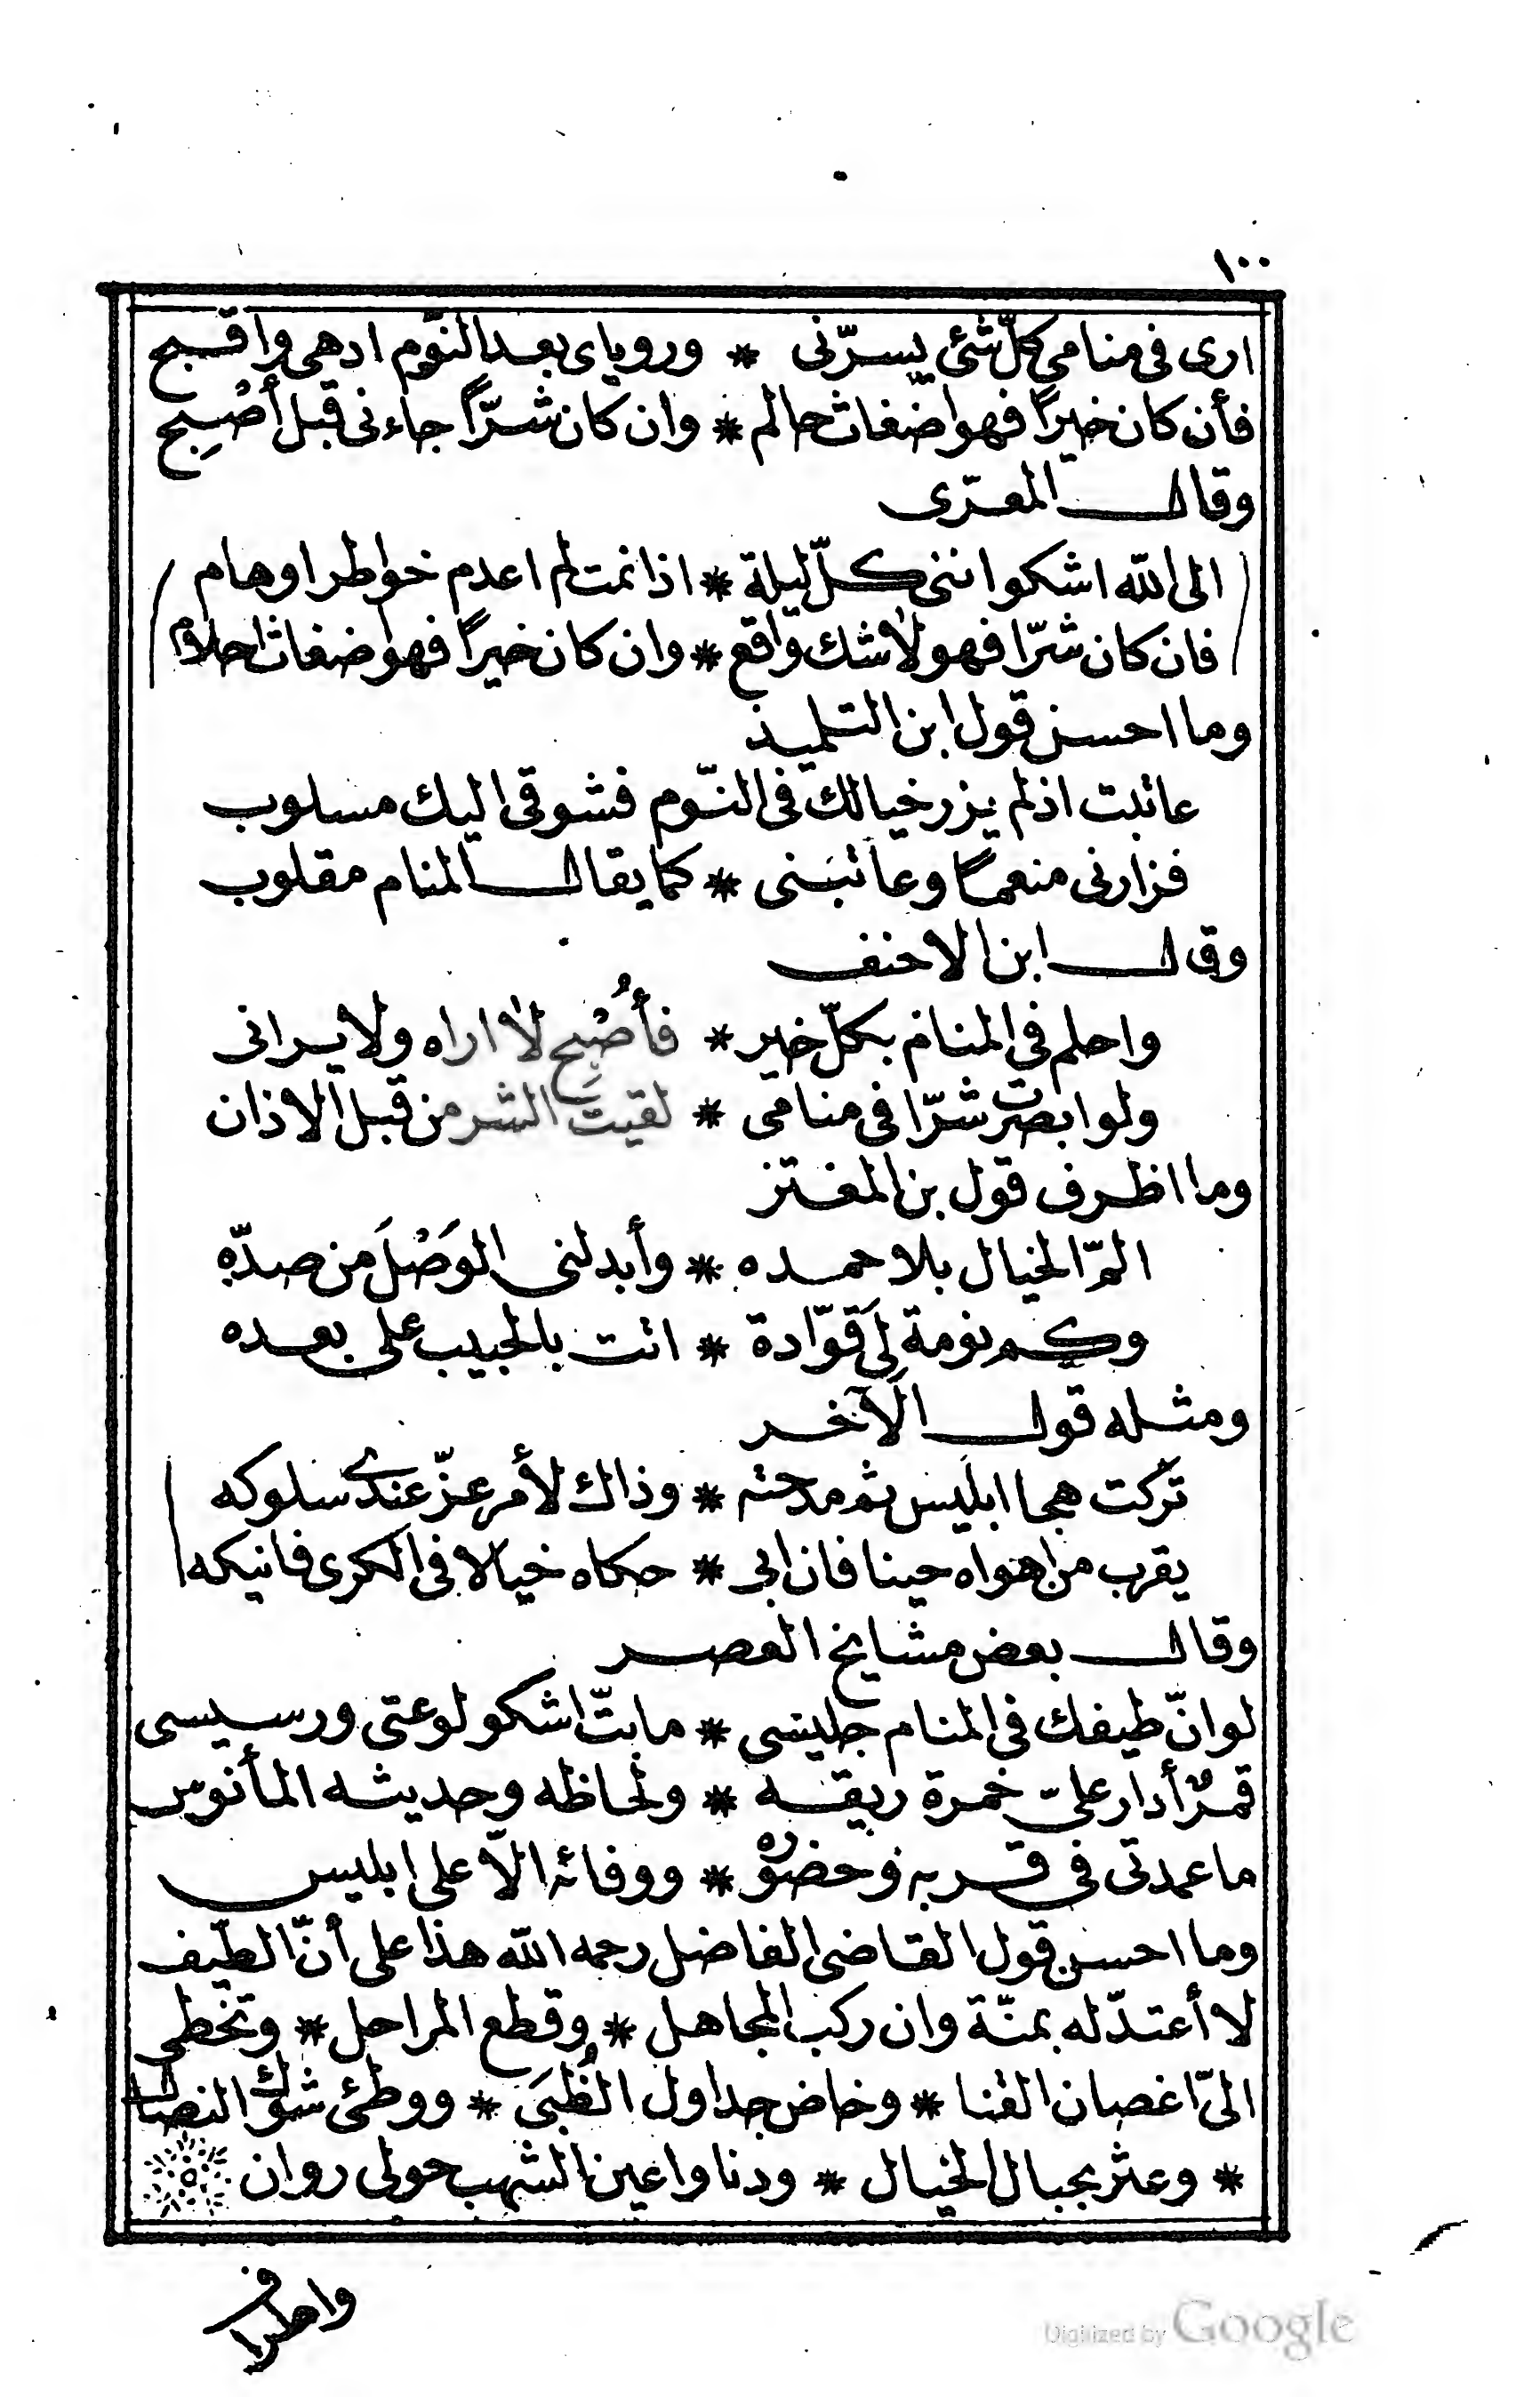 ١٠٠
ارى فى منامى كلّ شئ يسرّنى * ورؤياى بعد النّوم ادهى واقبح
فأن كان خيراً فهو اضغاث حالم * وان كان شرّاً جاءنى قبل أصْبِح
وقال المعرّى
الى الله اشكوا اننى كلّ ليلة * اذا نمت لم اعدم خواطر اوهام
فان كان شرّا فهو لا شك واقع * وان كان خيراً فهو اضغاث احلام
وما احسن قول ابن التلميذ
عاتبت اذ لم يزر خيالك فى النّوم فشوقى اليك مسلوب
فزارنى منعماً وعاتبَنى * كما يقال المنام مقلوب
وقال ابن الاحنف
واحلم فى المنام بكلّ خير * فأُصْبِح لا اراه ولا يرانى
ولو ابصرت شرّا فى منامى * لقيت الشر من قبل الاذان
وما اظرف قول بن المغتز
المّ الخيال بلا حمده * وأبدلنى الوَصْلَ من صدّهِ
وكم نومة لى قوّادة * اتت بالحبيب على بعده
ومثله قول الآخر
تركت هجا ابليس ثم مدحته * وذاك لأمر عزّ عندى سلوكه
يقرب من اهواه حينا فان ابى * حكاه خيالا فى الكرى فانيكه
وقال بعض مشايخ العصر
لو انّ طيفك فى المنام جليسى * ما بتّ اشكو لوعتى ورسيسى
قمرٌ أدار علىّ خمرة ريقه * ولحاظه وحديثه المأنوس
ما عمدتى فى قربه وحضوره * ووفائه الاّ على ابليس
وما احسن قول القاضى الفاضل رحمه الله هذا على أنّ الطيف
لا أعتدّ له بمنّة وان ركب المجاهل * وقطع المراحل * وتخطى
الىّ اغصان القنا * وخاض جداول الظُبَى * ووطئ شوك النصال
* وعثر بجبال الخيال * ودنا واعين الشهب حولى روان
واطراف